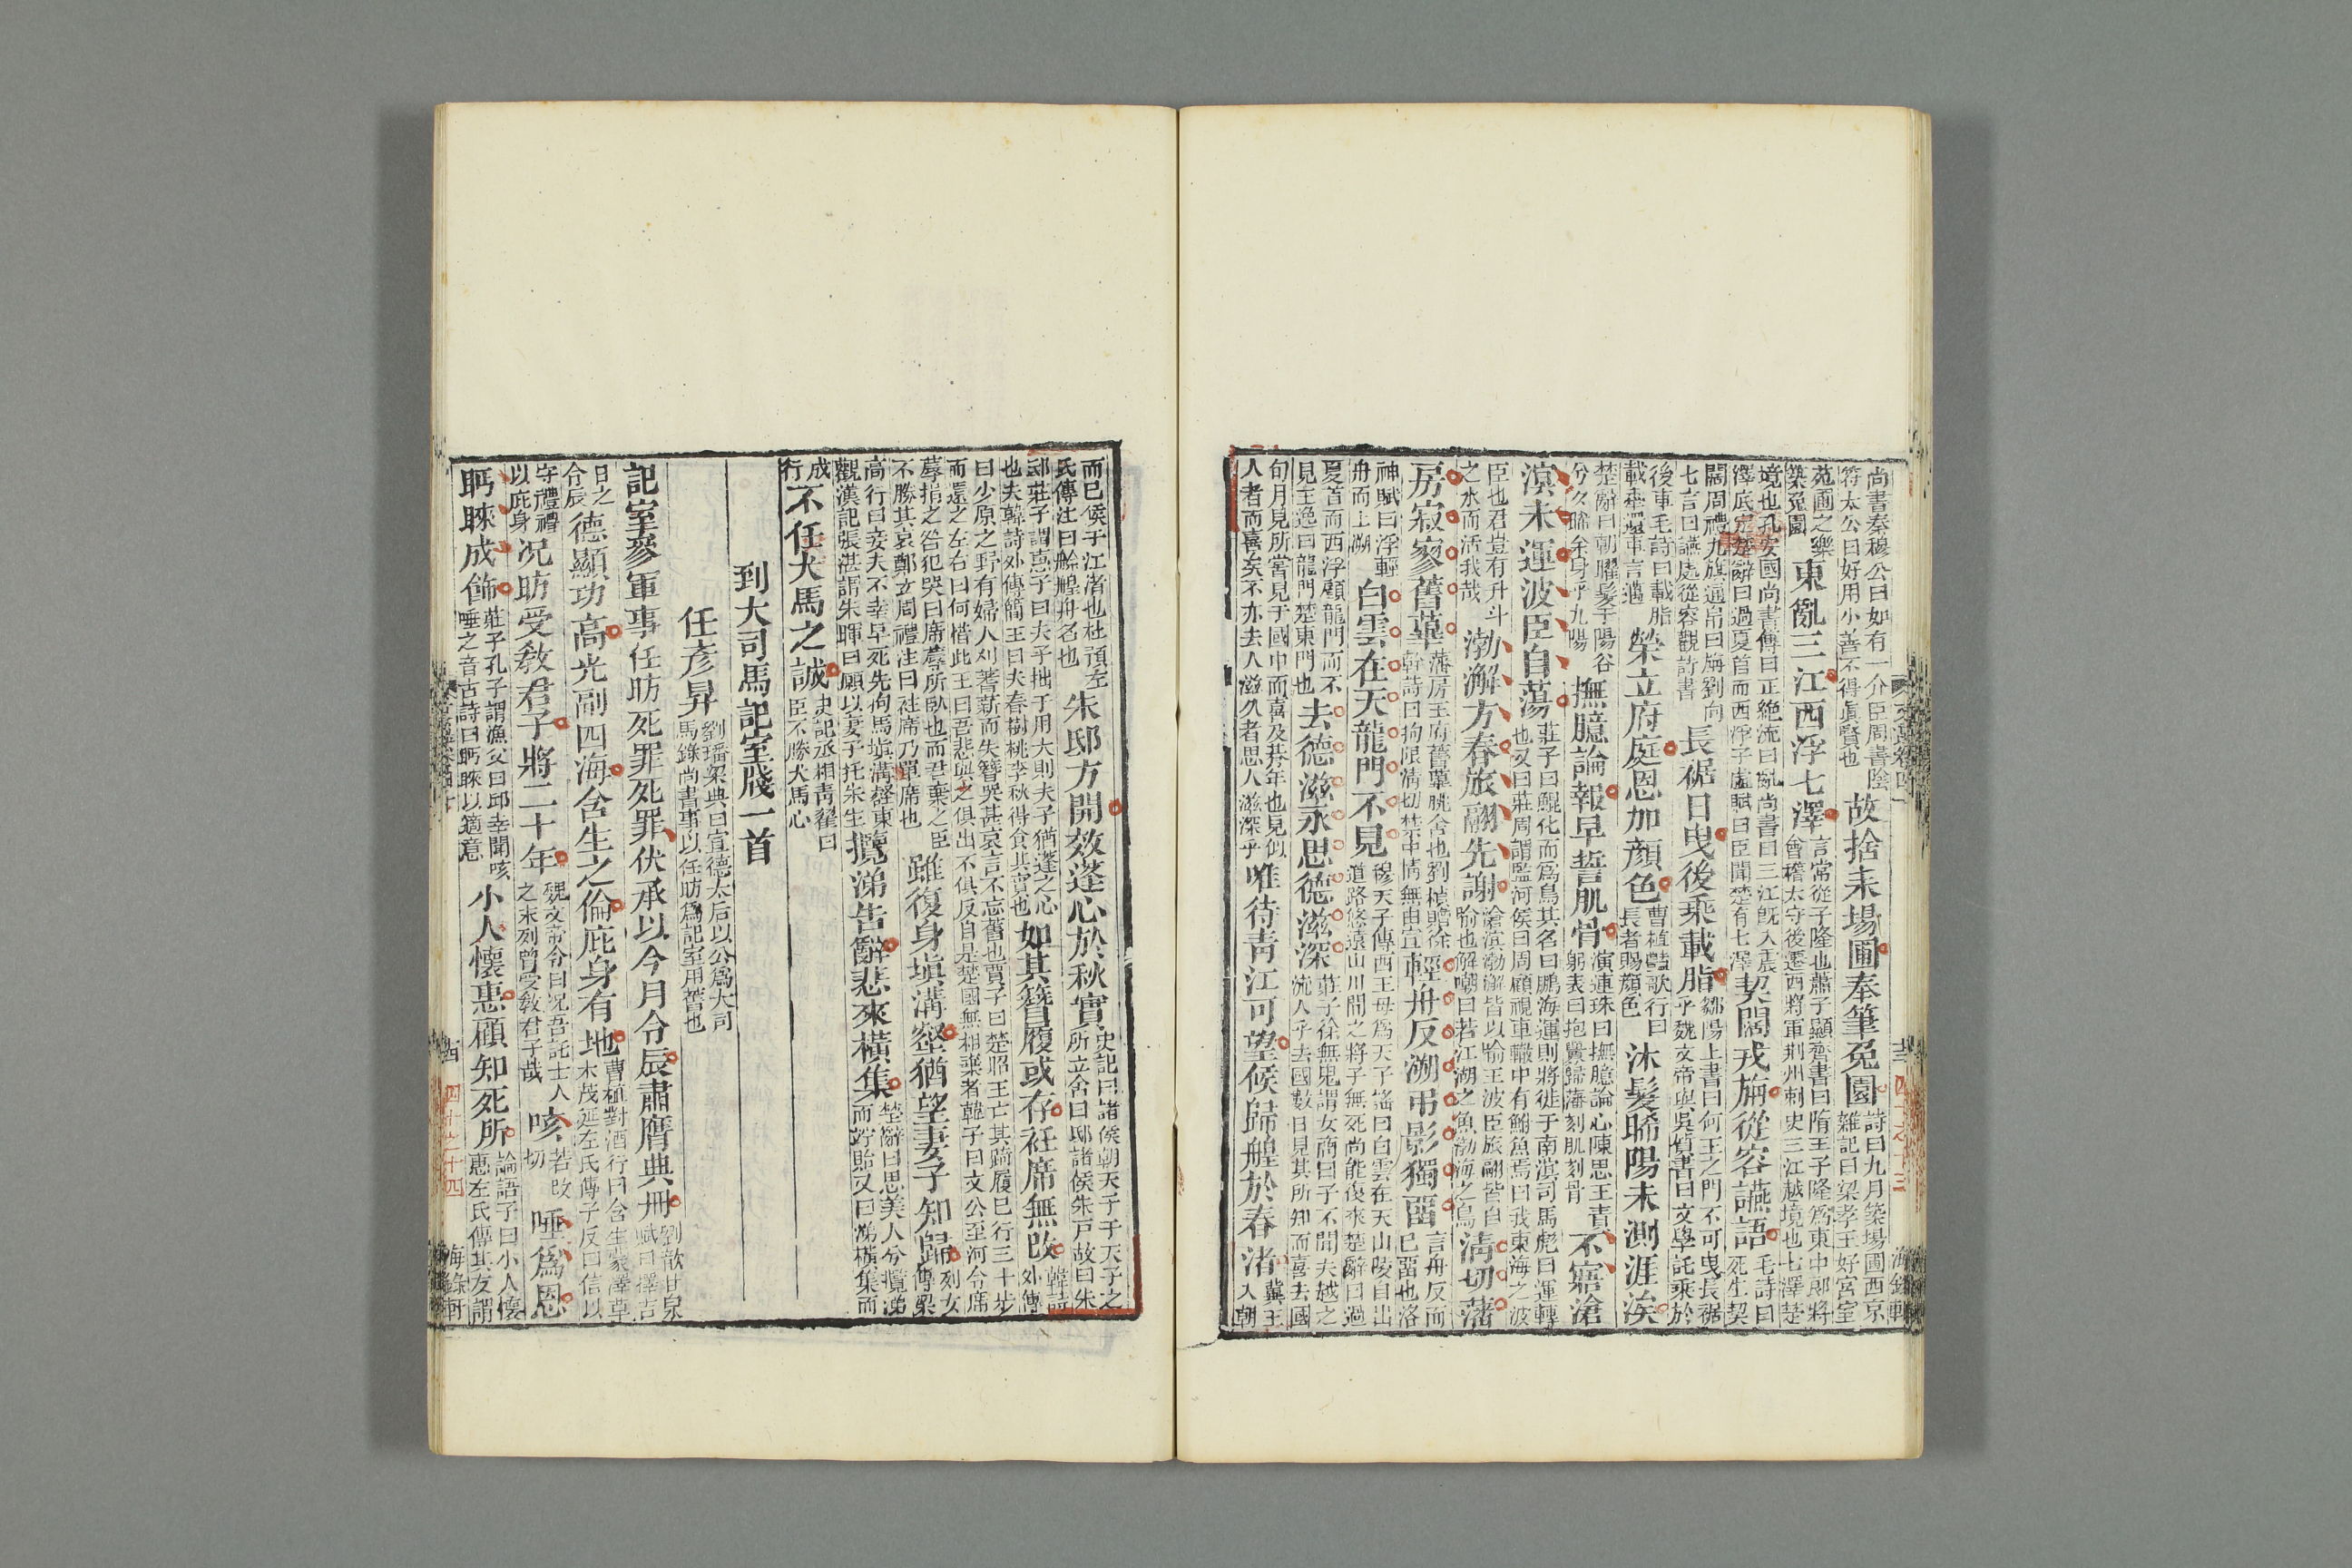 尚書秦穆公曰如有一介臣周書陰
符太公曰好用小善不得眞賢也
故捨耒場圃奉筆兔園
詩曰九月築場圃西京
雜記曰梁孝王好宮室
苑囿之樂
築兔園
東亂三江西浮七澤
言常從子隆也蕭子顯齊書曰隋王子隆爲東中郎將
會稽太守後遷西將軍荆州刺史三江越境也七澤楚
境也孔安國尚書傳曰正絶流曰亂尚書曰三江旣入震
澤底定楚辭曰過夏首而西浮子虛賦曰臣聞楚有七澤
契闊戎旃從容讌語
毛詩曰
死生契
闊周禮九旗通帛曰旃劉向
七言曰讌處從容觀詩書
長裾日曳後乗載脂
鄒陽上書曰何王之門不可曳長裾
乎魏文帝與吳質書曰文學託乘於
後車毛詩曰載脂
載舝還車言邁
榮立府庭恩加顏色
曹植豔歌行曰
長者賜顏色
沐髮晞陽未測涯涘
楚辭曰朝濯髮于陽谷
兮夕晞余身乎九陽
撫臆論報早誓肌骨
演連珠曰撫臆論心陳思王責
躬表曰抱舋歸藩刻肌刻骨
不寤滄
溟未運波臣自蕩
莊子曰鯤化而爲鳥其名曰鵬海運則將徙于南溟司馬彪曰運轉
也又曰莊周謂監河侯曰周顧視車轍中有鮒魚焉曰我東海之波
臣也君豈有升斗
之水而活我哉
渤澥方春旅翮先謝
滄溟渤澥皆以喻王波臣旅翮皆自
喻也解嘲曰若江湖之魚渤海之鳥
淸切藩
房寂寥舊蓽
藩房王府舊蓽朓舍也劉楨贈徐
幹詩曰拘限淸切禁中情無由宣
輕舟反溯弔影獨畱
言舟反而
已畱也洛
神賦曰浮輕
舟而上溯
白雲在天龍門不見
穆天子傳西王母爲天子謠曰白雲在天山陵自出
道路悠遠山川間之將子無死尚能復來楚辭曰過
夏首而西浮顧龍門而不
見王逸曰龍門楚東門也
去德滋永思德滋深
莊子徐無鬼謂女商曰子不聞夫越之
流人乎去國數日見其所知而喜去國
旬月見所嘗見于國中而喜及朞年也見似
人者而喜矣不亦去人滋久者思人滋深乎
唯待靑江可望候歸艎於春渚
冀王
入朝
而已侯于江渚也杜預左
氏傳注曰艅艎舟名也
朱邸方開效蓬心於秋實
史記曰諸侯朝天子于天子之
所立舍曰邸諸侯朱戶故曰朱
邸莊子謂惠子曰夫子拙于用大則夫子猶蓬之心
也夫韓詩外傳簡王曰夫春樹桃李秋得食其實也
如其簪履或存衽席無改
韓詩
外傳
曰少原之野有婦人刈蓍薪而失簪哭甚哀言不忘舊也賈子曰楚昭王亡其踦履已行三十步
而還之左右曰何惜此王曰吾悲與之俱出不俱反自是楚國無相棄者韓子曰文公至河令席
蓐捐之咎犯哭曰席蓐所臥也而君棄之臣
不勝其哀鄭玄周禮注曰衽席乃單席也
雖復身塡溝壑猶望妻子知歸
列女
傳梁
高行曰妾夫不幸早死先狗馬塡溝壑東
觀漢記張湛謂朱暉曰願以妻子托朱生
攬涕告辭悲來橫集
楚辭曰思美人兮攬涕
而竚眙又曰涕橫集而
成
行
不任犬馬之誠
史記丞相靑翟曰
臣不勝犬馬心
到大司馬記室牋一首
任彥昇
劉璠梁典曰宣德太后以公爲大司
馬錄尚書事以任昉爲記室用舊也
記室參軍事任昉死罪死罪伏承以今月令辰肅膺典冊
劉歆甘泉
賦曰擇吉
日之
令辰
德顯功高光副四海含生之倫庇身有地
曹植對酒行曰含生蒙澤草
木茂延左氏傳子反曰信以
守禮禮
以庇身
况昉受敎君子將二十年
魏文帝令曰况吾託士人
之末列曾受敎君子哉
咳
若改
切
唾爲恩
眄睞成飾
莊子孔子謂漁父曰邱幸聞咳
唾之音古詩曰眄睞以適意
小人懷惠顧知死所
論語子曰小人懷
惠左氏傳其友謂
文選卷四十
十三
四十之十三
海錄軒
十四
四十之十四
海錄軒